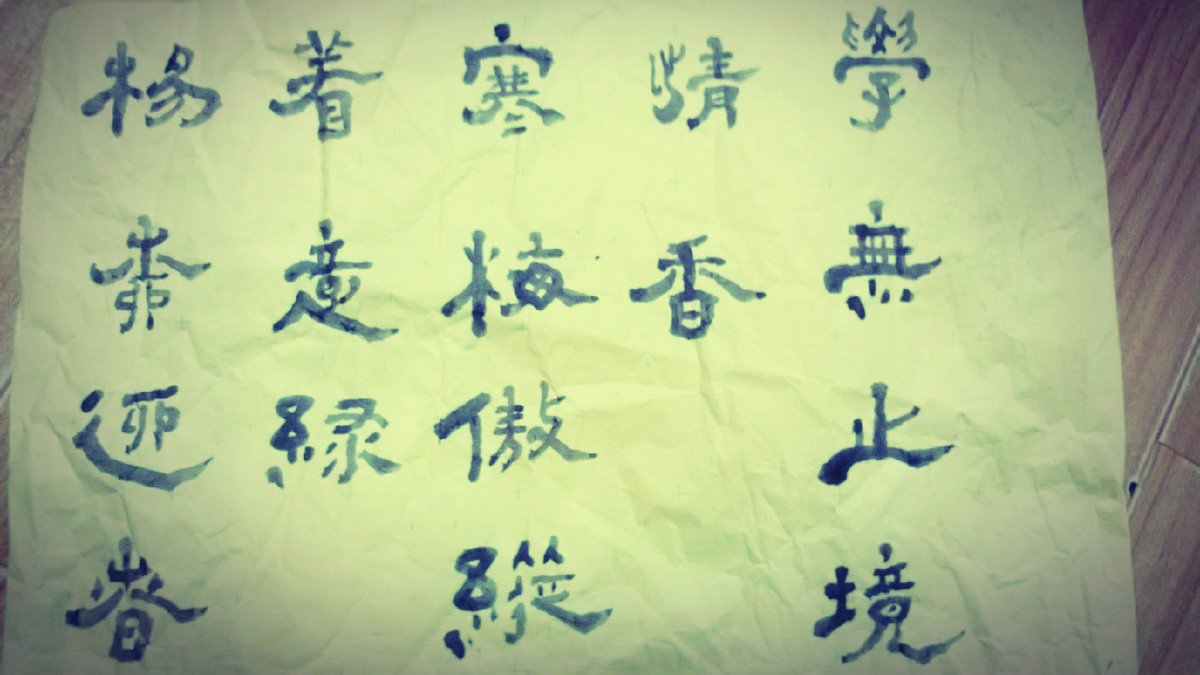 學無止境
情香
寒梅傲縱
着意緑
楊柳迎春